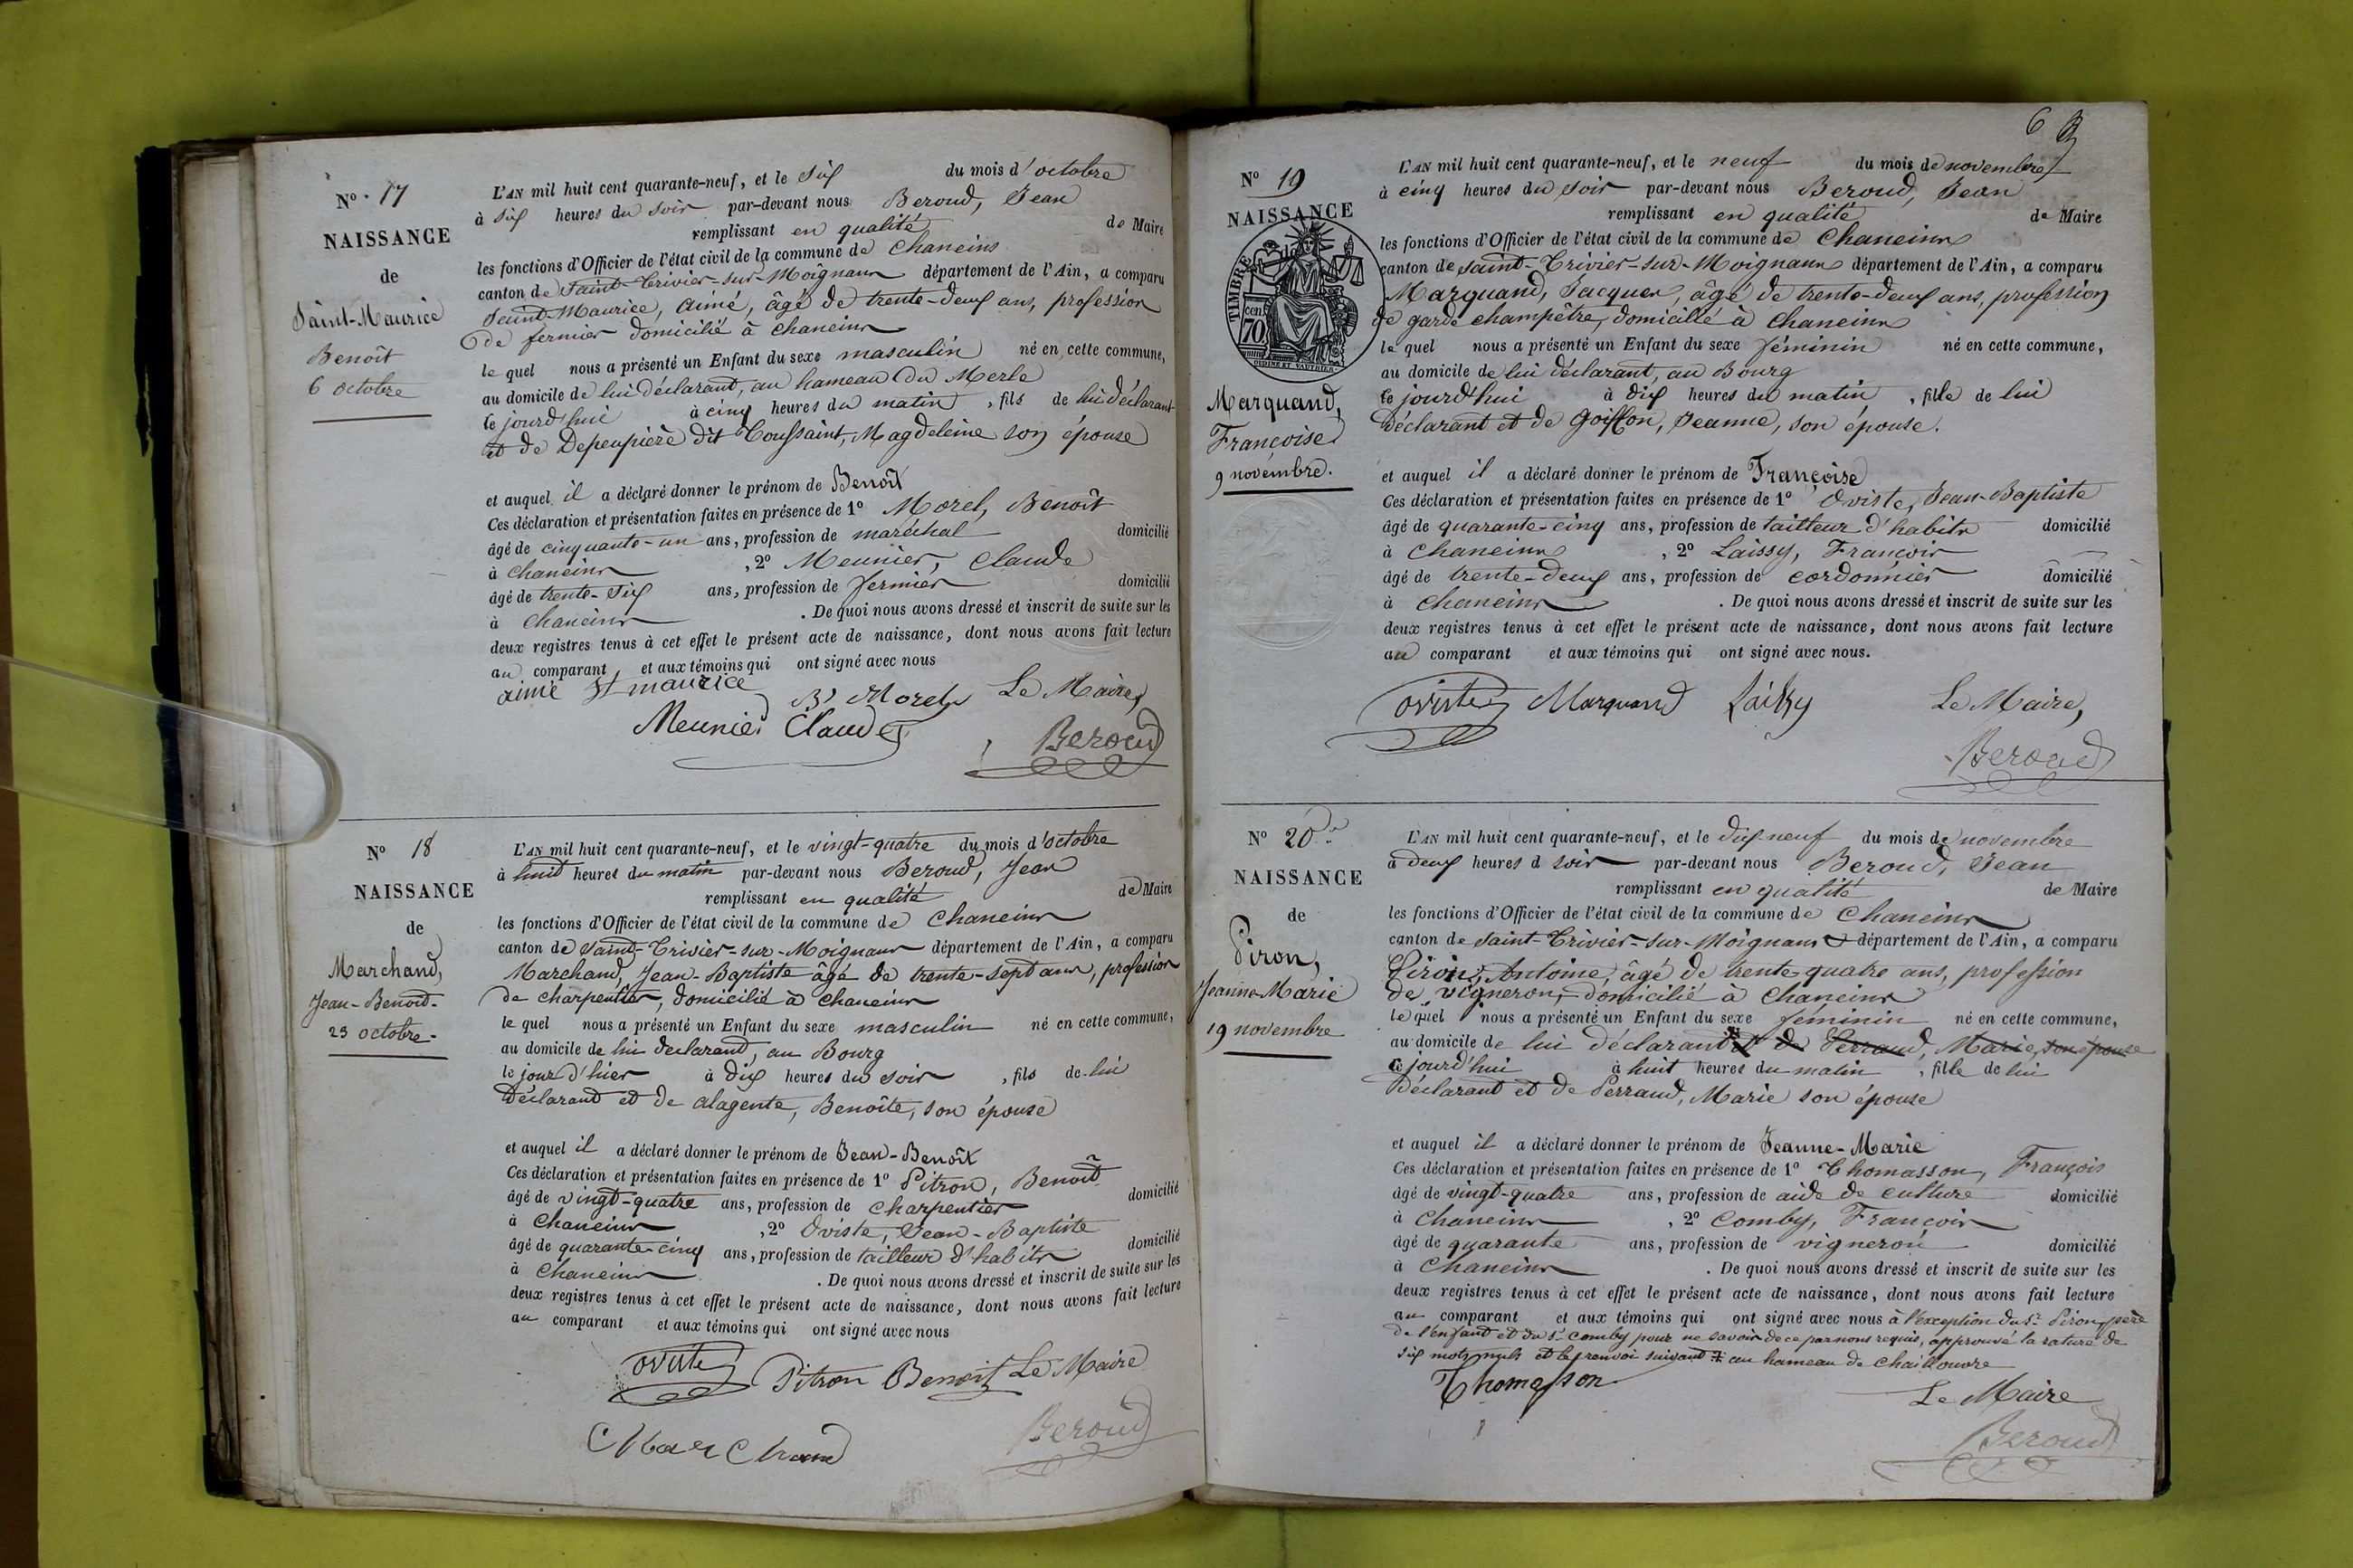 N° 17
NAISSANCE
de
Saint-Maurice
Benoît
6 octobre
L'AN mil huit cent quarante-neuf, et le six du mois d'octobre
à six heures du soir par-devant nous Beroud, Jean
remplissant en qualité de Maire
les fonctions d'Officier de l'état civil de la commune de Chaneins
canton de Saint-Trivier-sur-Moignans département de l'Ain, a comparu
Saint-Maurice, Aimé, âgé de trente-deux ans, profession
de fermier domicilié à Chaneins
le quel nous a présenté un Enfant du sexe masculin né en cette commune,
au domicile de lui déclarant, au hameau du Merle
ce jourd'hui à cinq heures du matin, fils de lui déclarant
et de Depeupière dit Toussaint, Magdeleine son épouse
et auquel il a déclaré donner le prénom de Benoît
Ces déclaration et présentation faites en présence de 1° Morel, Benoît
âgé de cinquante-un ans, profession de maréchal domicilié
à Chaneins, 2° Meunier, Claude
âgé de trente-six ans, profession de fermier domicilié
à Chaneins. De quoi nous avons dressé et inscrit de suite sur les
deux registres tenus à cet effet le présent acte de naissance, dont nous avons fait lecture
au comparant et aux témoins qui ont signé avec nous
aimé St maurice B. Morel Le Maire,
Meunier Claude Beroud
N° 18
NAISSANCE
de
Marchand,
Jean-Benoit.
23 octobre.
L'AN mil huit cent quarante-neuf, et le vingt-quatre du mois d'octobre
à huit heures du matin par-devant nous Beroud, Jean
remplissant en qualité de Maire
les fonctions d'Officier de l'état civil de la commune de Chaneins
canton de Saint-Trivier-sur-Moignans département de l'Ain, a comparu
Marchand, Jean-Baptiste âgé de trente-sept ans, profession
de charpentier, domicilié à Chaneins
le quel nous a présenté un Enfant du sexe masculin né en cette commune,
au domicile de lui déclarant, au Bourg
le jour d'hier à dix heures du soir, fils de lui
déclarant et de Alagente, Benoîte, son épouse
et auquel il a déclaré donner le prénom de Jean-Benoît
Ces déclaration et présentation faites en présence de 1° Pitron, Benoît
âgé de vingt-quatre ans, profession de charpentier domicilié
à Chaneins, 2° Oviste, Jean-Baptiste
âgé de quarante-cinq ans, profession de tailleur d'habits domicilié
à Chaneins. De quoi nous avons dressé et inscrit de suite sur les
deux registres tenus à cet effet le présent acte de naissance, dont nous avons fait lecture
au comparant et aux témoins qui ont signé avec nous
oviste Pitron Benoit Le Maire
Marchand Beroud
6
N° 19
NAISSANCE
TIMBRE
70 cen
Marquand,
Françoise
9 novembre.
L'AN mil huit cent quarante-neuf, et le neuf du mois de novembre
à cinq heures du soir par-devant nous Beroud, Jean
remplissant en qualité de Maire
les fonctions d'Officier de l'état civil de la commune de Chaneins
canton de Saint-Trivier-sur-Moignans département de l'Ain, a comparu
Marquand, Jacques, âgé de trente-deux ans, profession
de garde champêtre, domicilié à Chaneins
le quel nous a présenté un Enfant du sexe féminin né en cette commune,
au domicile de lui déclarant, au Bourg
ce jourd'hui à dix heures du matin, fille de lui
déclarant et de Goiffon, Jeanne, son épouse.
et auquel il a déclaré donner le prénom de Françoise
Ces déclaration et présentation faites en présence de 1° Oviste, Jean-Baptiste
âgé de quarante-cinq ans, profession de tailleur d'habits domicilié
à Chaneins, 2° Laissy, François
âgé de trente-deux ans, profession de cordonnier domicilié
à Chaneins. De quoi nous avons dressé et inscrit de suite sur les
deux registres tenus à cet effet le présent acte de naissance, dont nous avons fait lecture
au comparant et aux témoins qui ont signé avec nous.
oviste Marquand Laissy Le Maire,
Beroud
N° 20
NAISSANCE
de
Piron,
Jeanne-Marie
19 novembre
L'AN mil huit cent quarante-neuf, et le dix-neuf du mois de novembre
à deux heures d soir par-devant nous Beroud, Jean
remplissant en qualité de Maire
les fonctions d'Officier de l'état civil de la commune de Chaneins
canton de Saint-Trivier-sur-Moignans département de l'Ain, a comparu
Piron, Antoine, âgé de trente-quatre ans, profession
de vigneron, domicilié à Chaneins
le quel nous a présenté un Enfant du sexe féminin né en cette commune,
au domicile de lui déclarant et de Perraud, Marie, son épouse
ce jourd'hui à huit heures du matin, fille de lui
déclarant et de Perraud, Marie son épouse
et auquel il a déclaré donner le prénom de Jeanne-Marie
Ces déclaration et présentation faites en présence de 1° Thomasson, François
âgé de vingt-quatre ans, profession de aide de culture domicilié
à Chaneins, 2° Comby, François
âgé de quarante ans, profession de vigneron domicilié
à Chaneins. De quoi nous avons dressé et inscrit de suite sur les
deux registres tenus à cet effet le présent acte de naissance, dont nous avons fait lecture
au comparant et aux témoins qui ont signé avec nous à l'exception du Sr Piron, père
de l'enfant et du Sr Comby pour ne savoir de ce par nous requis, approuvé la rature de
six mots nuls et le renvoi suivant ‡ au hameau de Chaillouvre
Thomasson
Le Maire
Beroud